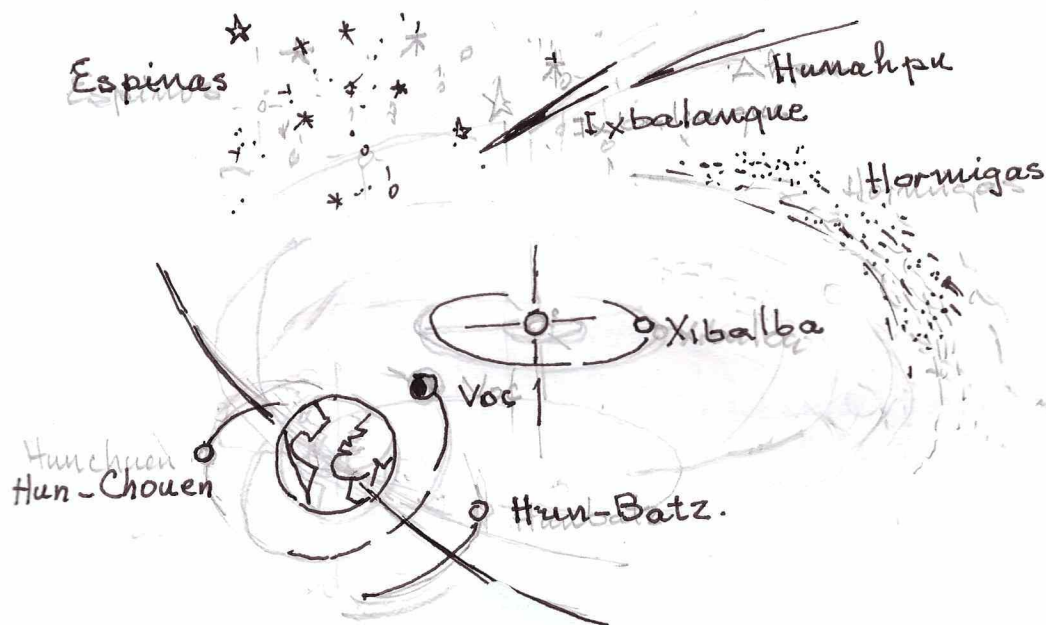 Espinas
Hunahpu
Ixbalanque
Hormigas
Xibalba
Voc
Hunchuen
Hun-Chouen
Hun-Batz.